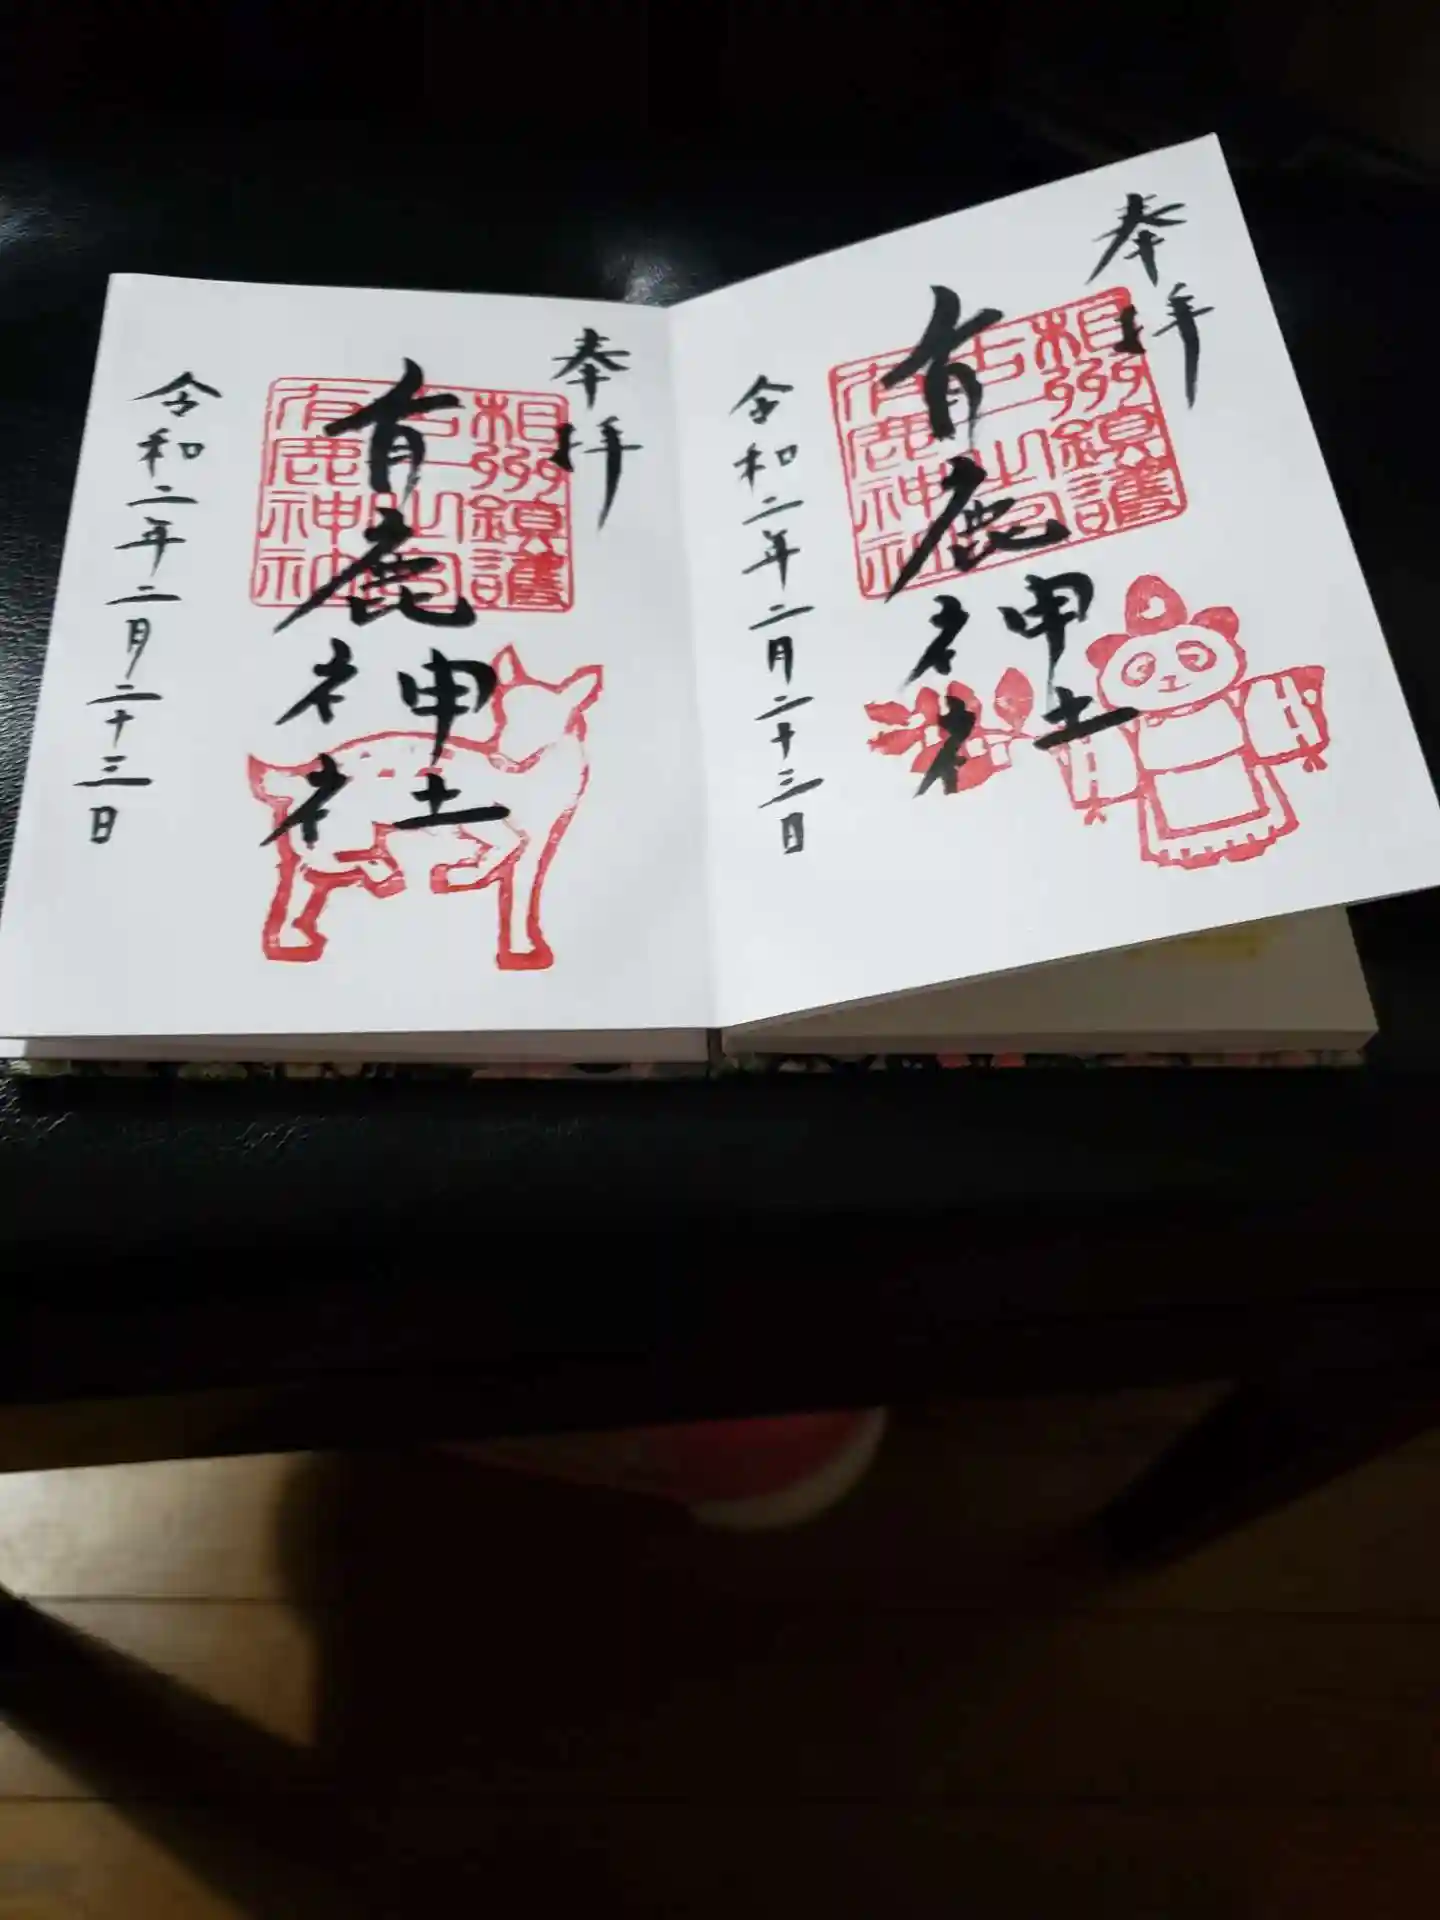 奉拝
相州鎮護
古一之宮
有鹿神社
有鹿神社
令和二年二月二十三日
奉拝
相州鎮護
古一之宮
有鹿神社
有鹿神社
令和二年二月二十三日